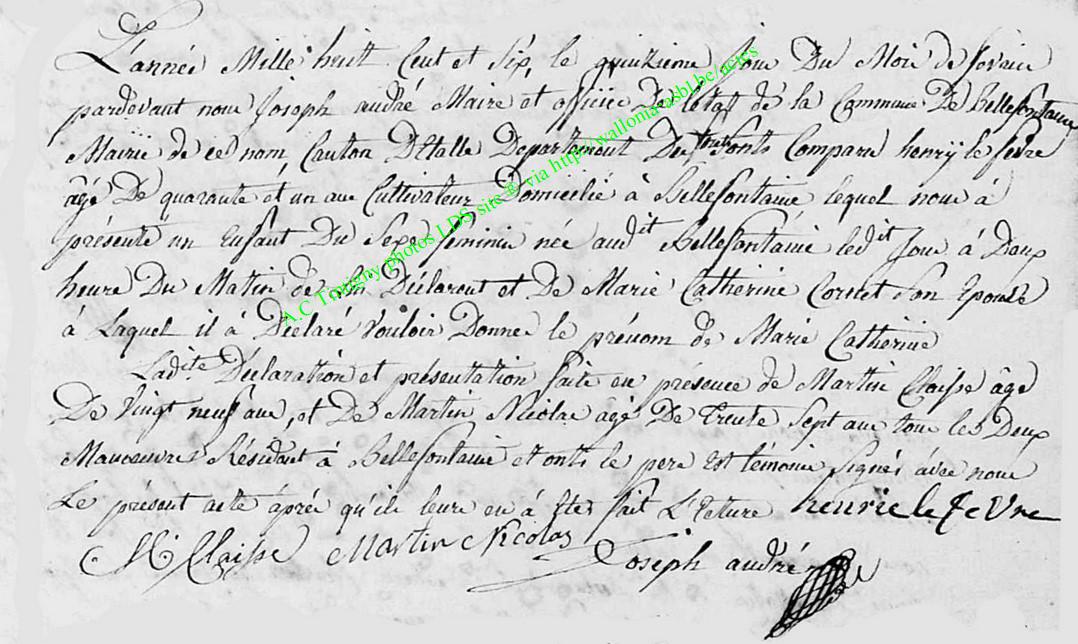 L'année Mille huit Cent et Six, le quinzieme Jour Du Moi de fevrier
pardevant nous Joseph andré Maire et officie De letat de la Commune De Bellefontaine
Mairie de ce nom, Canton Détalle Departement Des forets Sont Comparu henry le fevre
âgé De quarante et un ans Cultivateur Domicilié à Bellefontaine lequel nous à
présenté un Enfant Du Sexe feminin née audit Bellefontaine ledit Jour à Deux
heure Du Matin de lui Déclarant et De Marie Catherine Cornet Son Epouse
à Laquel il à Declaré Vouloir Donner le prénom de Marie Catherine
Ladite Déclaration et présentation faite en présence de Martin Claisse âgé
De Vingt neuf ans, et De Martin Nicolas agé De Trente Sept ans tous les Deux
Manoeuvres Résidant à Bellefontaine et onts le pere est temoins Signés avec nous
Le présent acte aprés qu'ils leure en à été fait Lecture henrie le fevre
M Claisse Martin Nicolas Joseph andré
A.C Tintigny photos LDS site ® via http://wallonia-asbl.be/actes